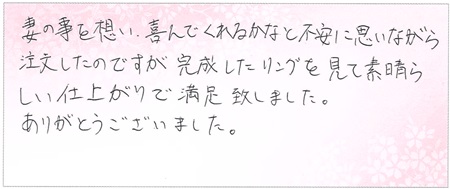 妻の事を想い、喜んでくれるかなと不安に思いながら
注文したのですが完成したリングを見て素晴ら
しい仕上がりで満足致しました。
ありがとうございました。